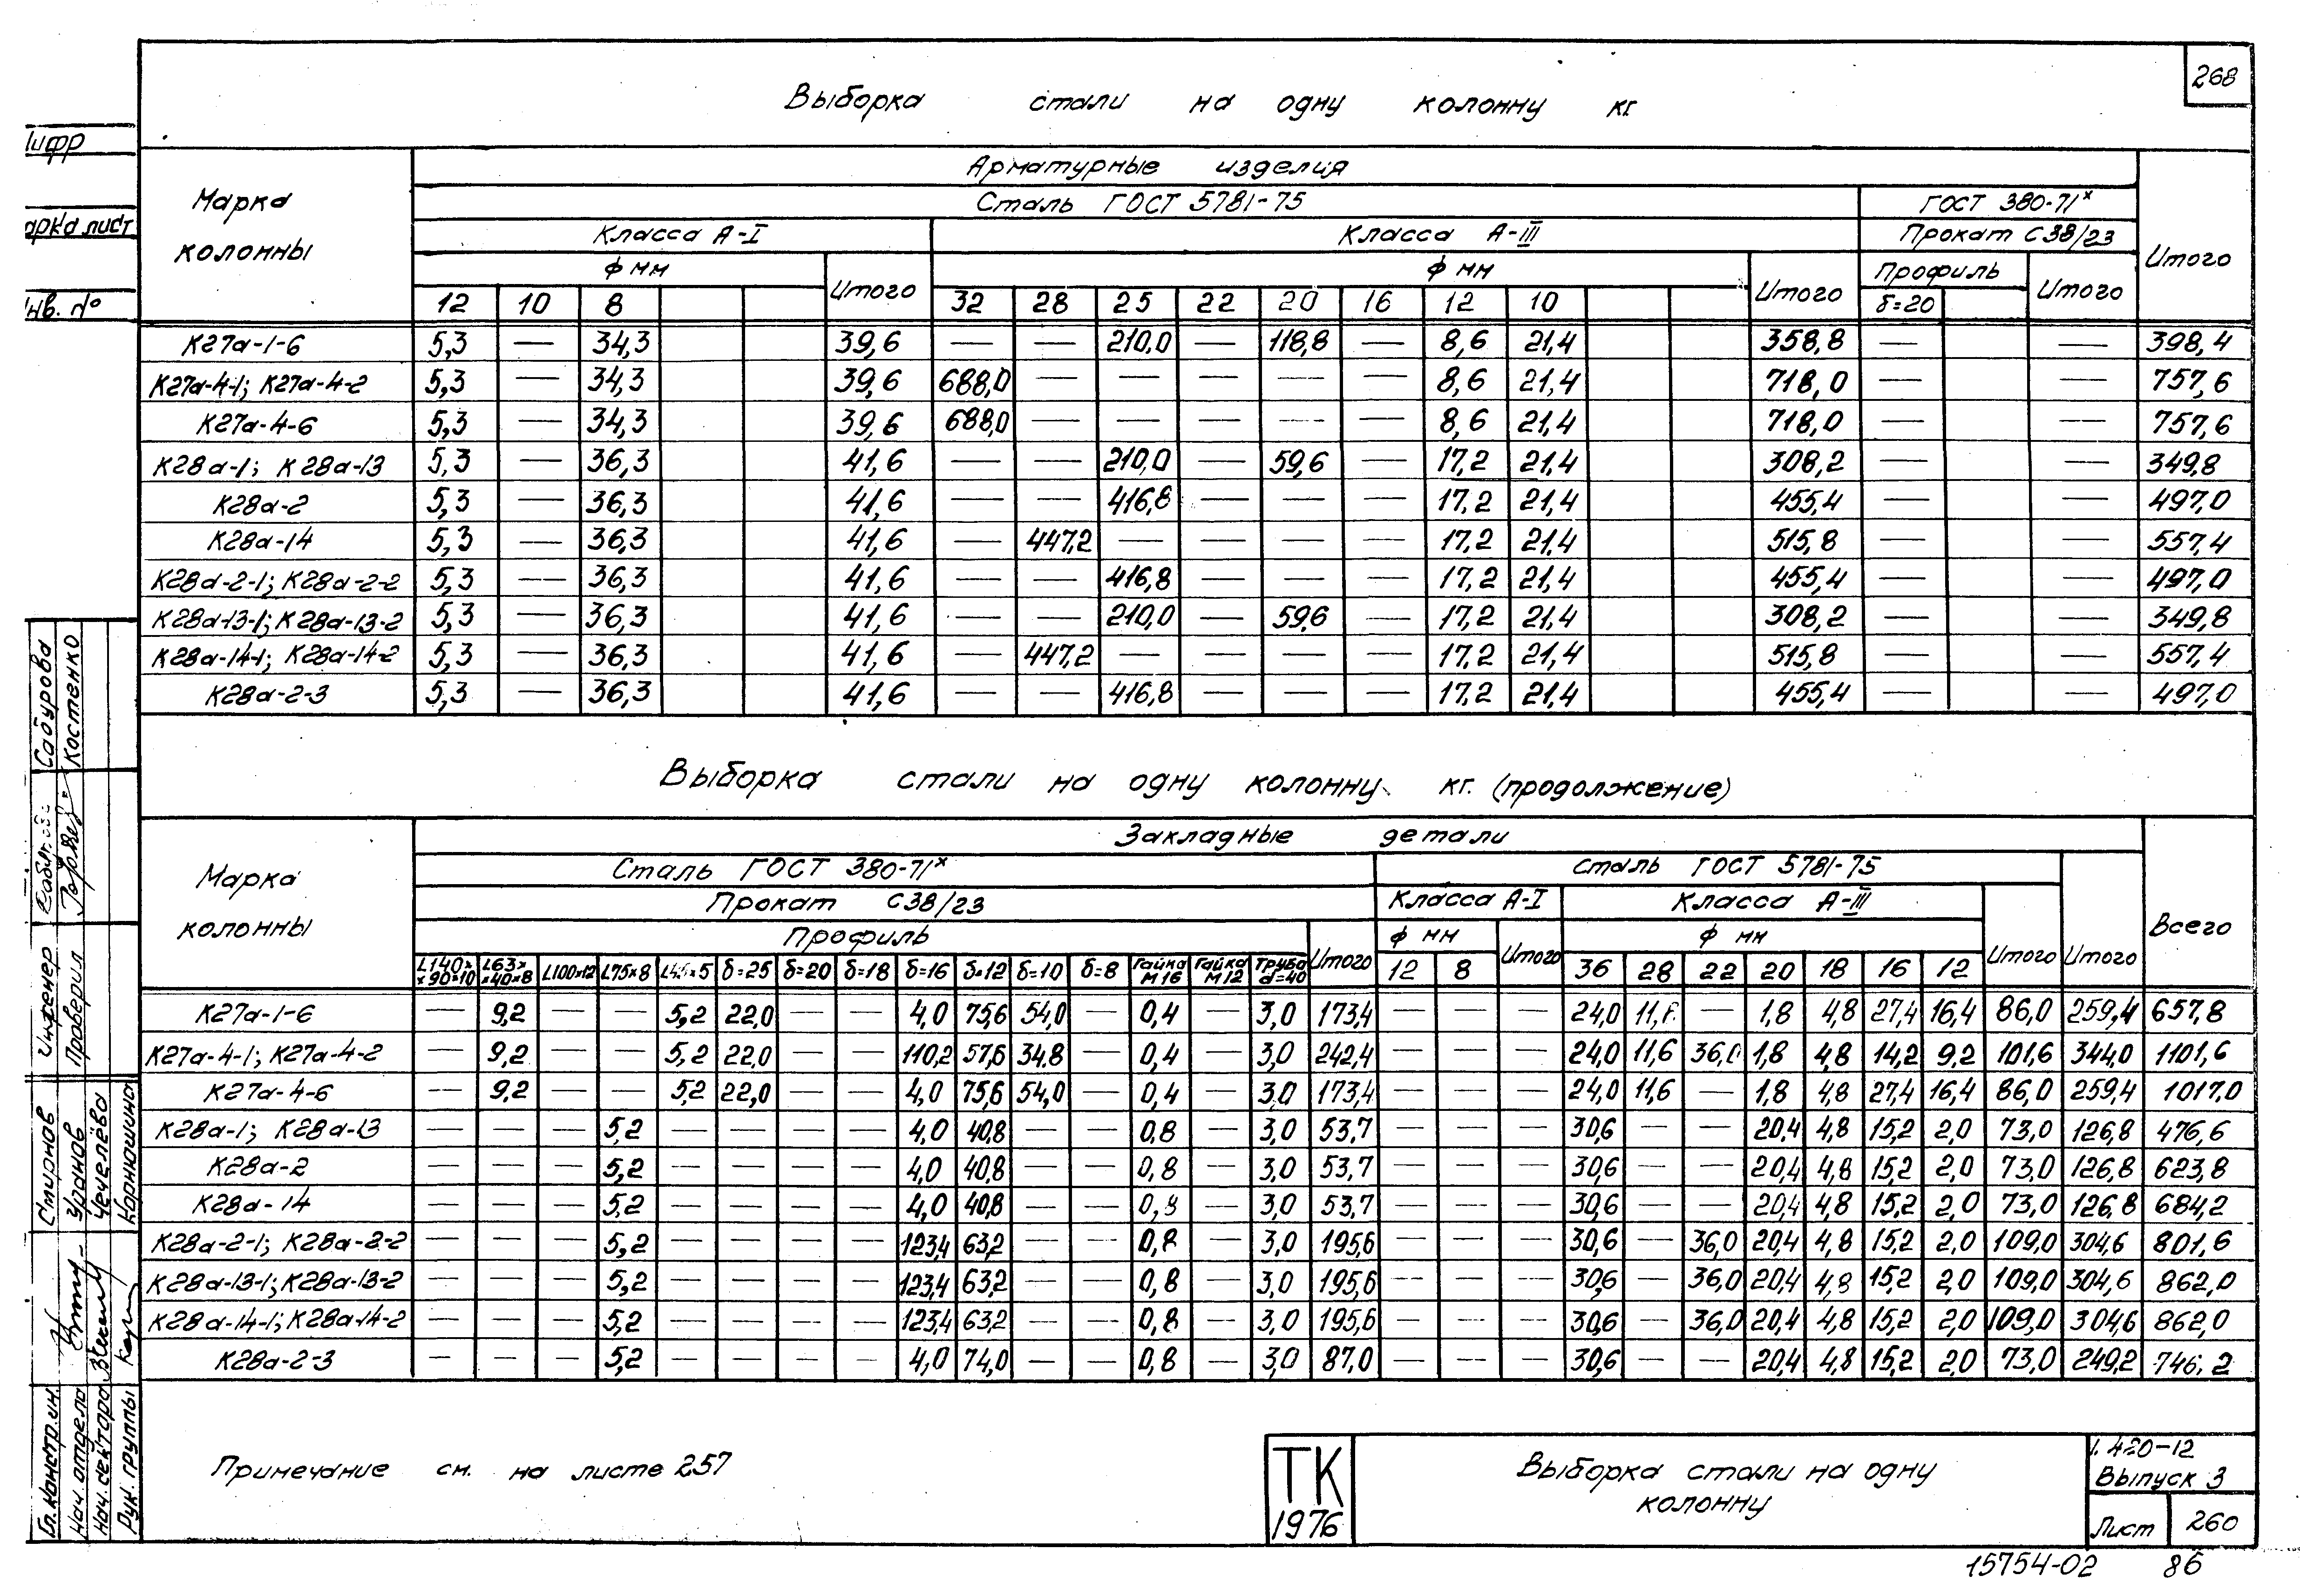 268
Выборка стали на одну колонну кг.
Марка колонны
Арматурные изделия
Итого
Сталь ГОСТ 5781-75
ГОСТ 380-71х
Класса А-I
Класса А-III
Прокат С38/23
ф мм
Итого
ф мм
Итого
Профиль
Итого
12 10 8 32 28 25 22 20 16 12 10 δ=20
К27а-1-6 5,3 — 34,3 39,6 — — 210,0 — 118,8 — 8,6 21,4 358,8 — — 398,4
К27а-4-1; К27а-4-2 5,3 — 34,3 39,6 688,0 — — — — — 8,6 21,4 718,0 — — 757,6
К27а-4-6 5,3 — 34,3 39,6 688,0 — — — — — 8,6 21,4 718,0 — — 757,6
К28а-1; К28а-13 5,3 — 36,3 41,6 — — 210,0 — 59,6 — 17,2 21,4 308,2 — — 349,8
К28а-2 5,3 — 36,3 41,6 — — 416,8 — — — 17,2 21,4 455,4 — — 497,0
К28а-14 5,3 — 36,3 41,6 — 447,2 — — — — 17,2 21,4 515,8 — — 557,4
К28а-2-1; К28а-2-2 5,3 — 36,3 41,6 — — 416,8 — — — 17,2 21,4 455,4 — — 497,0
К28а-13-1; К28а-13-2 5,3 — 36,3 41,6 — — 210,0 — 59,6 — 17,2 21,4 308,2 — — 349,8
К28а-14-1; К28а-14-2 5,3 — 36,3 41,6 — 447,2 — — — — 17,2 21,4 515,8 — — 557,4
К28а-2-3 5,3 — 36,3 41,6 — — 416,8 — — — 17,2 21,4 455,4 — — 497,0
Выборка стали на одну колонну кг. (продолжение)
Марка колонны
Закладные детали
Всего
Сталь ГОСТ 380-71х
Сталь ГОСТ 5781-75
Итого
Прокат С38/23
Класса А-I
Класса А-III
Итого
Профиль
Итого
ф мм
Итого
ф мм
L140××90×10 L63××40×8 L100×12 L75×8 L45×5 δ=25 δ=20 δ=18 δ=16 δ=12 δ=10 δ=8 Гайка М16 Гайка М12 Труба d=40 12 8 36 28 22 20 18 16 12
К27а-1-6 — 9,2 — — 5,2 22,0 — — 4,0 75,6 54,0 — 0,4 — 3,0 173,4 — — — 24,0 11,6 — 1,8 4,8 27,4 16,4 86,0 259,4 657,8
К27а-4-1; К27а-4-2 — 9,2 — — 5,2 22,0 — — 110,2 57,6 34,8 — 0,4 — 3,0 242,4 — — — 24,0 11,6 36,0 1,8 4,8 14,2 9,2 101,6 344,0 1101,6
К27а-4-6 — 9,2 — — 5,2 22,0 — — 4,0 75,6 54,0 — 0,4 — 3,0 173,4 — — — 24,0 11,6 — 1,8 4,8 27,4 16,4 86,0 259,4 1017,0
К28а-1; К28а-13 — — — 5,2 — — — — 4,0 40,8 — — 0,8 — 3,0 53,7 — — — 30,6 — — 20,4 4,8 15,2 2,0 73,0 126,8 476,6
К28а-2 — — — 5,2 — — — — 4,0 40,8 — — 0,8 — 3,0 53,7 — — — 30,6 — — 20,4 4,8 15,2 2,0 73,0 126,8 623,8
К28а-14 — — — 5,2 — — — — 4,0 40,8 — — 0,8 — 3,0 53,7 — — — 30,6 — — 20,4 4,8 15,2 2,0 73,0 126,8 684,2
К28а-2-1; К28а-2-2 — — — 5,2 — — — — 123,4 63,2 — — 0,8 — 3,0 195,6 — — — 30,6 — 36,0 20,4 4,8 15,2 2,0 109,0 304,6 801,6
К28а-13-1; К28а-13-2 — — — 5,2 — — — — 123,4 63,2 — — 0,8 — 3,0 195,6 — — — 30,6 — 36,0 20,4 4,8 15,2 2,0 109,0 304,6 862,0
К28а-14-1; К28а-14-2 — — — 5,2 — — — — 123,4 63,2 — — 0,8 — 3,0 195,6 — — — 30,6 — 36,0 20,4 4,8 15,2 2,0 109,0 304,6 862,0
К28а-2-3 — — — 5,2 — — — — 4,0 74,0 — — 0,8 — 3,0 87,0 — — — 30,6 — — 20,4 4,8 15,2 2,0 73,0 249,2 746,2
Примечание см. на листе 257
ТК
1976
Выборка стали на одну
колонну
1.420-12
Выпуск 3
Лист 260
15754-02 86
Гл. констр. ин. Смирнов
Нач. отдела Уранов
Нач. сектора Чечелева
Рук. группы Корнюшина
Инженер Сабурова
Проверил Костенко